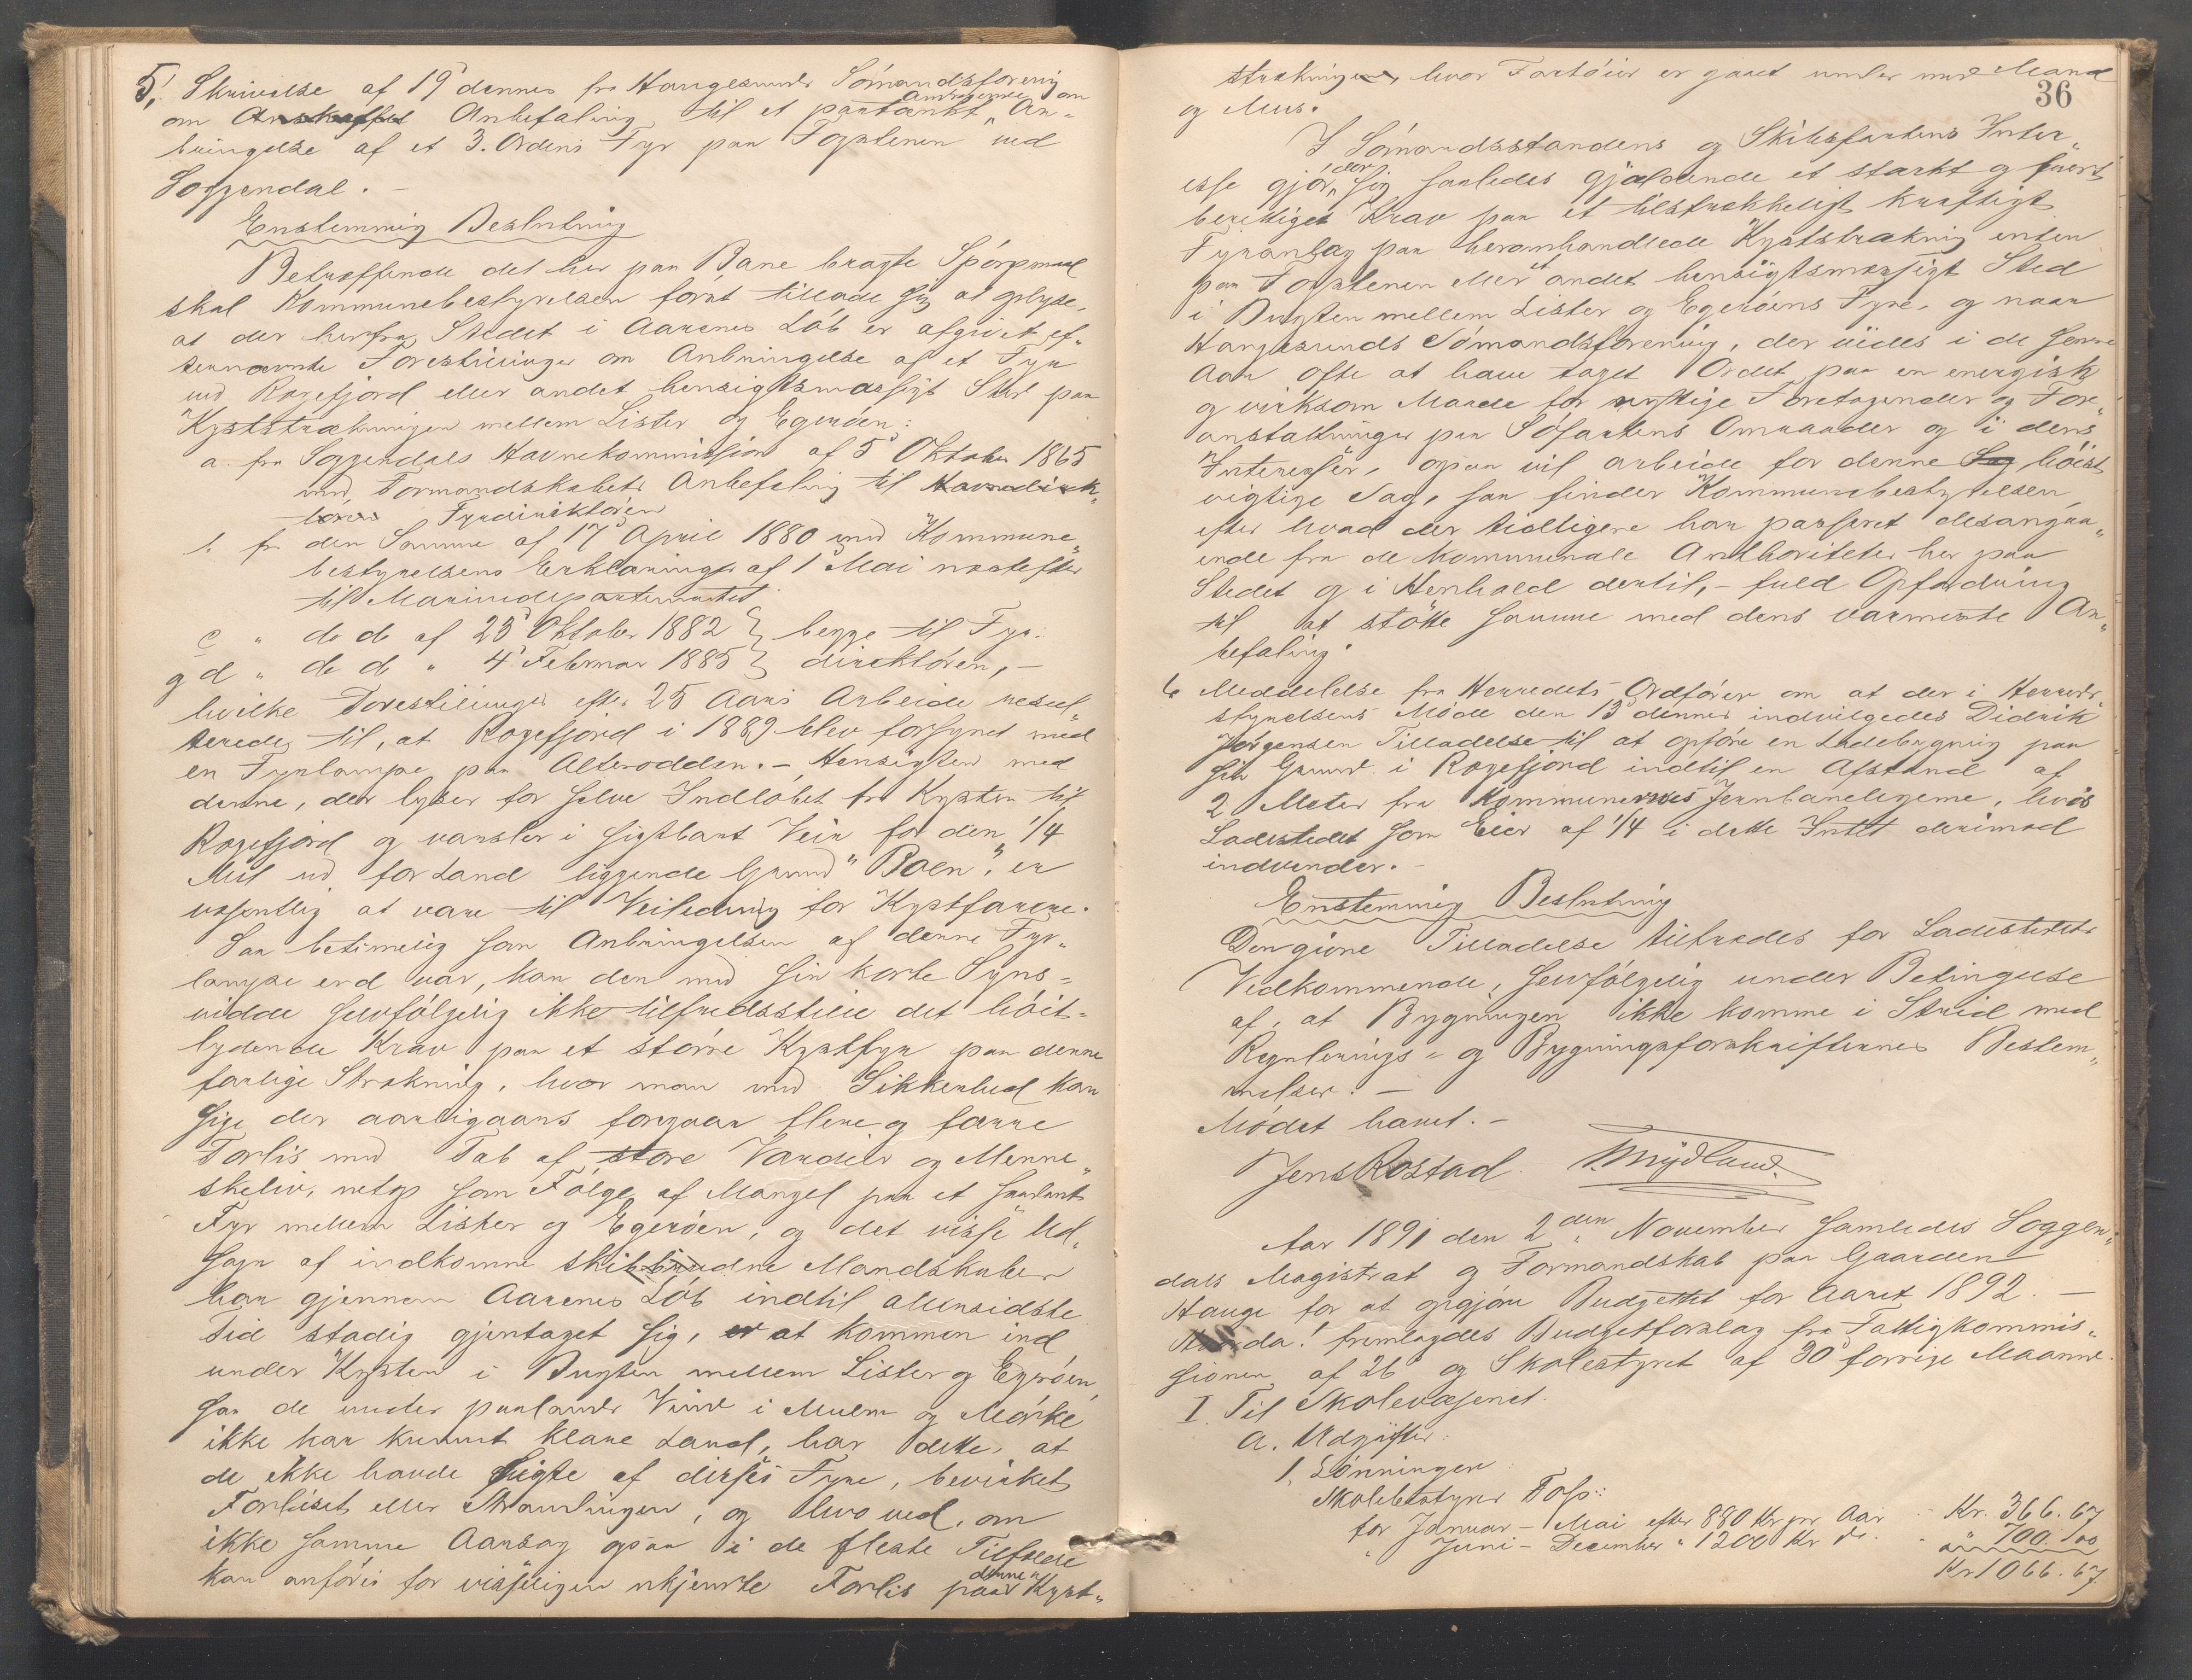 5, Skrivelse af 19' dennes fra Haugesunds Sømandsforenig
om Anskaffet Anbefaling til et paatænkt Andragende om An-
bringelse af et 3. Ordens Fyr paa Fogstenen ved
Soggendal. -
Enstemmig Beslutning
Betræffende det her paa Bane bragte Spørgsmaal
skal Kommunebestyrelsen først tillade sig at oplyse,
at der herfra Stedet i Aarenes Løb er afgivet ef-
ternævnte Forestillinger om Anbringelse af et Fyr
ved Rægefjord eller andet hensigtsmæssigt Sted paa
Kyststrækningen mellem Lister og Egerøen:
a. fra Soggendals Havnekommission af 5' Oktober 1865
med Formandskabets Anbefaling til Havnedirek-
tøren Fyrdirektøren
b. fra den Samme af 17' April 1880 med Kommune-
bestyrelsens Erklæringer af 1' Mai næstefter
til Marinedepartementet
c " do do af 25' Oktober 1882 } begge til Fyr-
og d " do do " 4' Februar 1885 } direktøren, -
hvilke Forestillinger efter 25 Aars Arbeide resul-
terede til, at Rægefjord i 1889 blev forsynet med
en Fyrlampe paa Alterodden. - Hensigten med
denne, der lyser for selve Indløbet fra Kysten til
Rægefjord og varsler i sigtbart Veir for den 1/4
Mil ud for Land liggende Grund "Boen", er
væsentlig at være til Veiledning for Kystfarere.
Saa betimelig som Anbringelsen af denne Fyr-
lampe end var, kan den med sin korte Syns-
vidde selvfølgelig ikke tilfredsstille det høit-
lydende Krav paa et større Kystfyr paa denne
farlige Strækning, hvor man med Sikkerhed kan
sige der aarligaars foregaar flere og færre
Forlis med Tab af store Værdier og Menne-
skeliv, netop som Følge af Mangel paa et saadant
Fyr mellem Lister og Egerøen, og det visse Ud-
sagn af indkomne skibbrudne Mandskaber
har gjennem Aarenes Løb indtil allersidste
Tid stadig gjentaget sig, er at kommen ind
under Kysten i Bugten mellem Lister og Egerøen,
saa de under paalands Vind i Mulm og Mørke
ikke har kunnet klare Land, har dette, at
de ikke havde Sigte af disses Fyre, bevirket
Forliset eller Strandingen, og hvo ved, om
ikke samme Aarsag ogsaa i de fleste Tilfælde
kan anføres for visseligen ukjendte Forlis paa denne Kyst-
36
strækningen, hvor Fartøier er gaaet under med Mand
og Mus.
I Sømandsstandens og Skibsfartens Inter-
esse gjør der sig saaledes gjældende et stærkt og
berettiget Krav paa et tilstrækkeligt kraftigt
Fyranlæg paa heromhandlede Kyststrækning enten
paa Fogstenen eller et andet hensigtsmæssigt Sted
i Bugten mellem Lister og Egerøens Fyre, og naar
Haugesunds Sømandsforening, der vides i de senere
Aar ofte at have taget Ordet paa en energisk
og virksom Maade for nyttige Foretagender og For-
anstaltninger paa Søfartens Omraader og i dens
Interesser, ogsaa vil arbeide for denne Sag høist
vigtige Sag, saa finder Kommunebestyrelsen,
efter hvad der tidligere har passeret desangaa-
ende fra de kommunale Authoriteter her paa
Stedet og i Henhold dertil, - fuld Opfordring
til at støtte samme med dens varmeste An-
befaling.
6 Meddelelse fra Herredets Ordfører om at der i Herreds-
styrelsens Møde den 13' dennes indvilgedes Didrik
Jørgensen Tilladelse til at opføre en Ladebygning paa
sin Grund i Rægefjord indtil en Afstand af
2 Meter fra Kommunernes Jernbaneligeme, hvis
Ladestedet som Eier af 1/4 i dette Intet derimod
indvender. -
Enstemmig Beslutning
Den givne Tilladelse tiltrædes for Ladestedets
Vedkommende, selvfølgelig under Betingelse
af, at Bygningen ikke komme i Strid med
Regulerings- og Bygningsforskrifternes Bestem-
melser. -
Mødet hævet. -
Jens Rostad. Mydland.
Aar 1891 den 2den November samledes Soggen-
dals Magistrat og Formandskab paa Gaarden
Hauge for at opgjøre Budgettet for Aaret 1892. -
da! fremlagdes Budgetforslag fra Fattigkommis-
sionen af 26' og Skolestyret af 30' forrige Maaned.
I. Til Skolevæsenet.
a. Udgifter:
1, Lønninger
Skolebestyrer Foss:
for Januar - Mai efter 880 Kr pr Aar - Kr. 366.67
" Juni - December " 1200 Kr do. - " 700.00
Kr 1066.67.